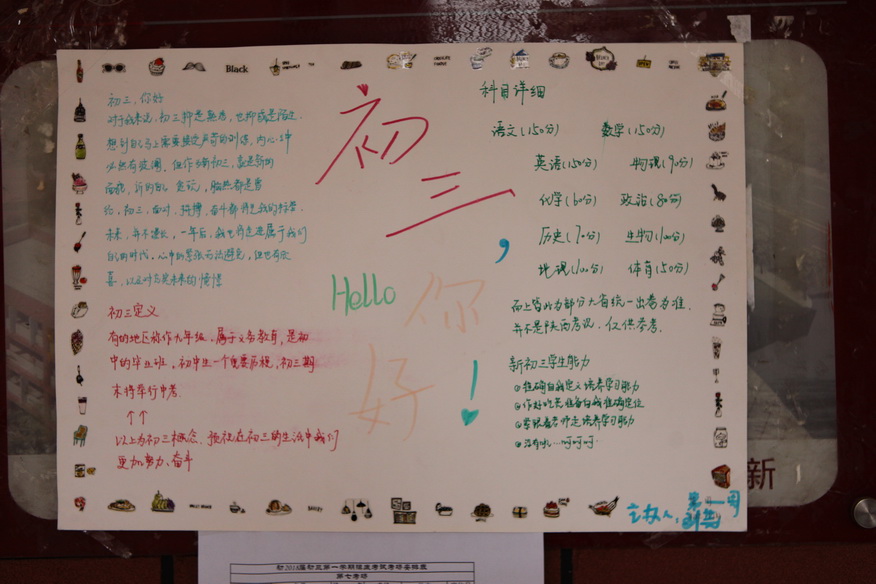 Black
初三,
Hello 你
好!
初三,你好
对于我来说,初三即是熟悉,也即是陌生
想到自己马上需要接受严苛的训练,内心中
必然有波澜,但作为新初三,就是新的
面貌,新的
约,初三,面对,拼搏,奋斗都将是我的标签
未来,并不遥远,一年后,我也将走进属于我们
自己的时代,心中的紧张无法避免,但也有欣
喜,以及对高度未来的憧憬
初三定义
有的地区称作九年级,属于义务教育,是初
中的毕业班,初中生一个重要历程,初三期
末将举行中考.
↑↑
以上为初三概念,预祝在初三的生活中我们
更加努力、奋斗
科目详细
语文(150分) 数学(150分)
英语(150分) 物理(90分)
化学(60分) 政治(80分)
历史(70分) 生物(100分)
地理(100分) 体育(50分)
而上皆以为部分大省统一出卷为准,
并不是陕西考况,仅供参考.
新初三学生能力
①准确自我定义 培养学习能力
②作好吃苦准备 自我准确定位
③紧跟着老师走 培养学习能力
④没有啦...呵呵呵..
主权人:第一周
新
初2016届初三第一学期 考试考场安排表
第七考场